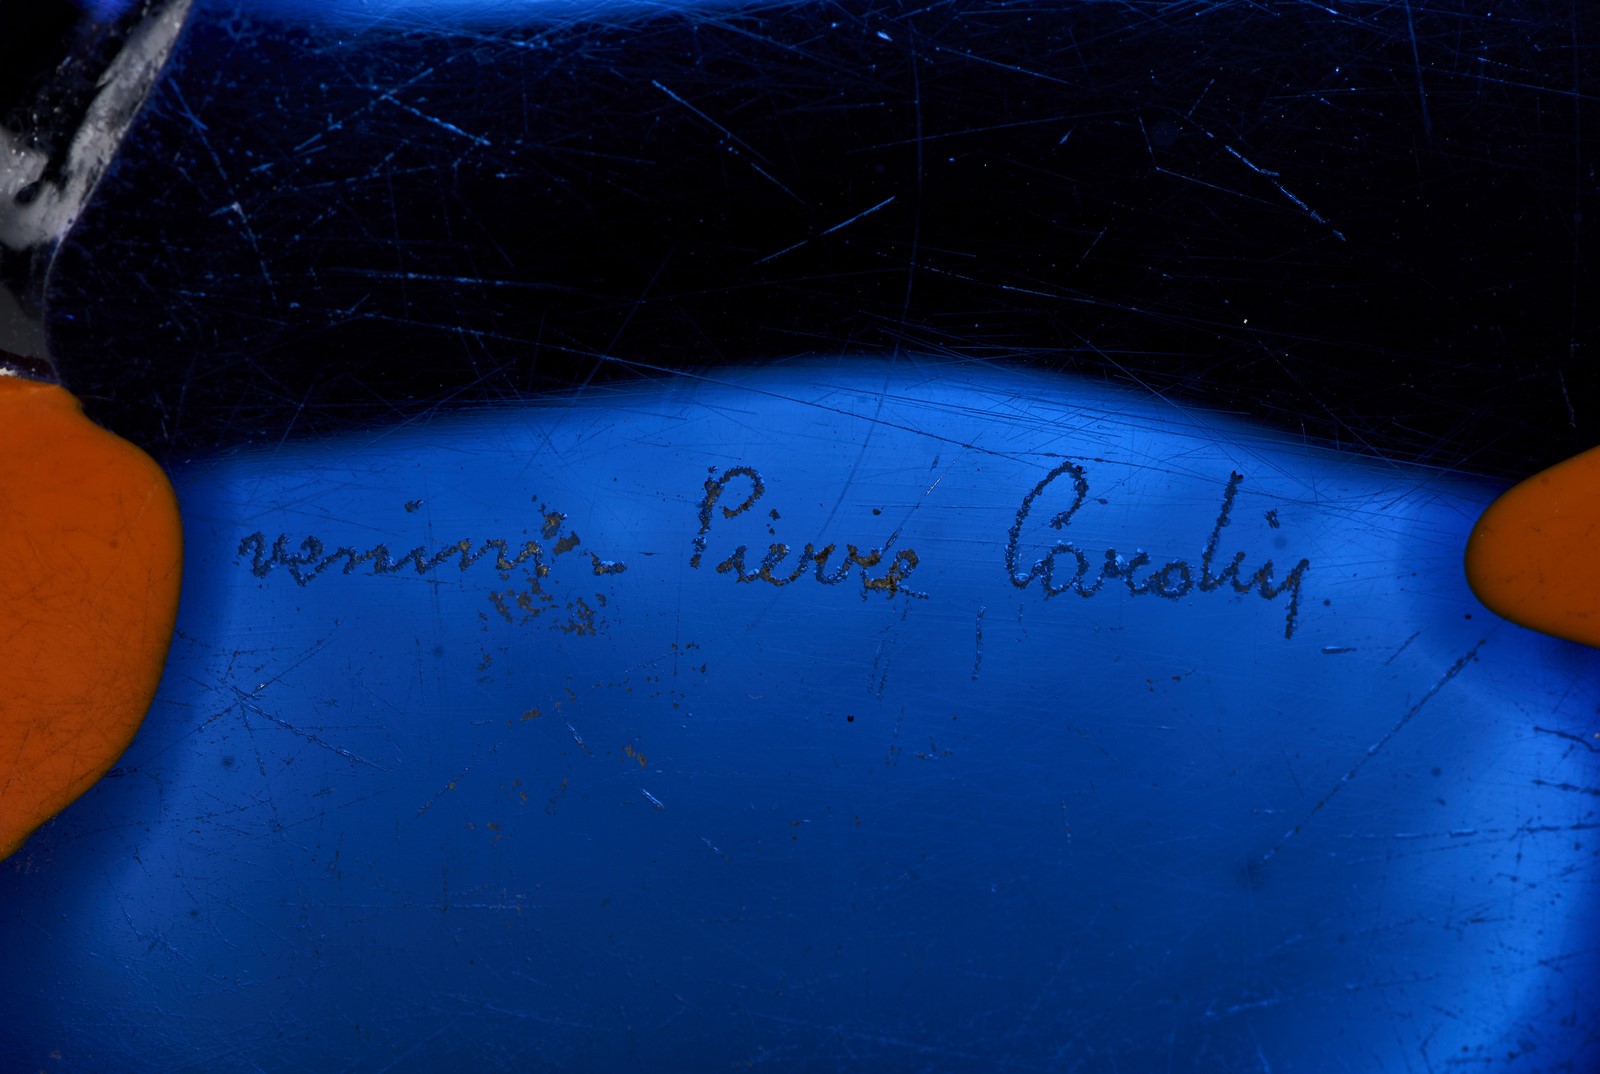 venini Pierre Cardin